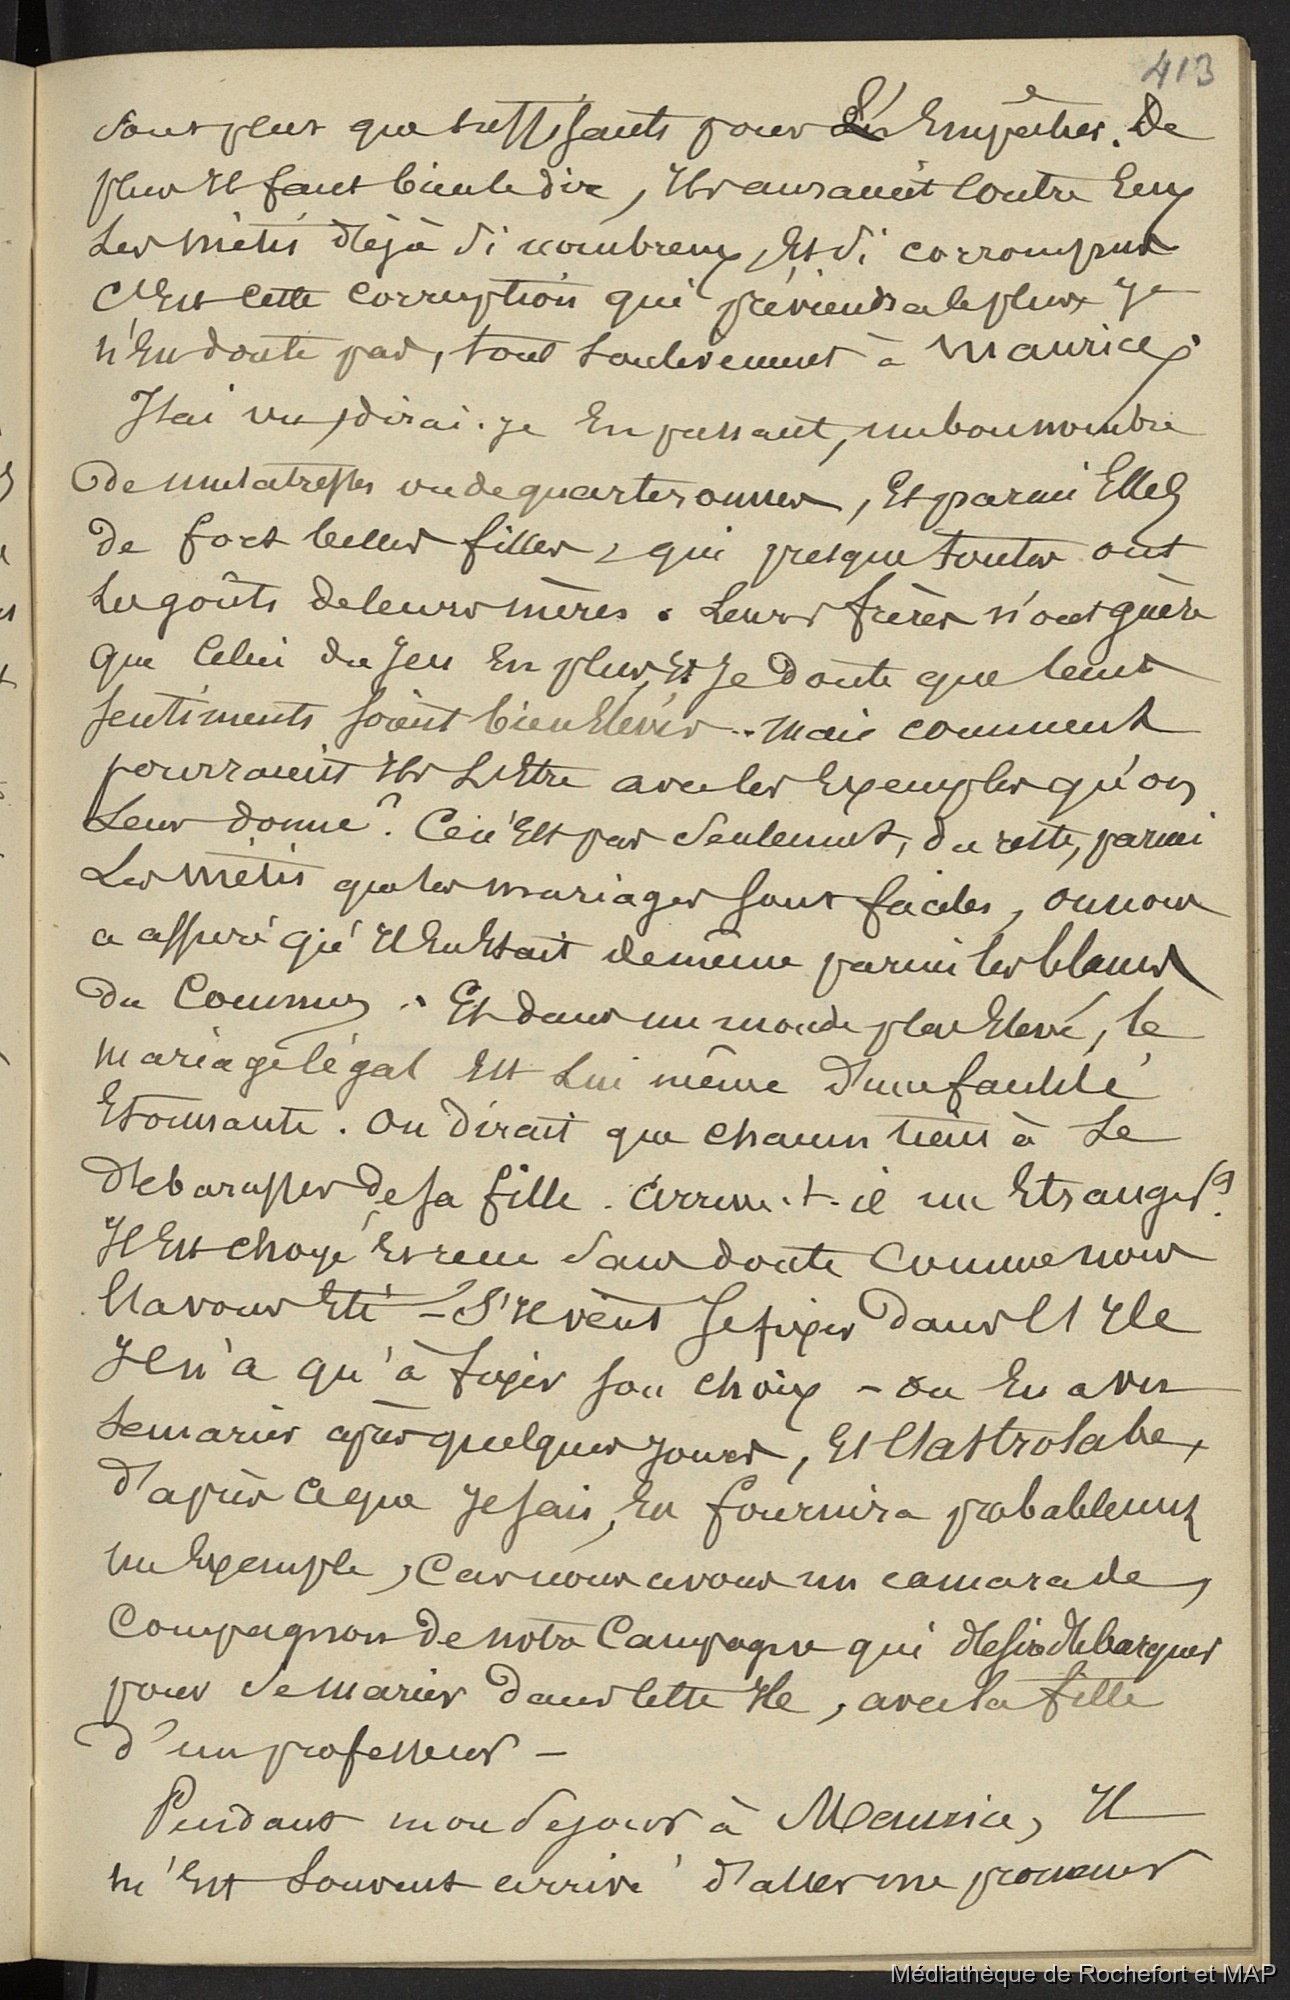 413
sont plus que suffisants pour l'empêcher. De
plus Il faut bien le dire, Ils auraient contre Eux
Les métis déjà si nombreux, Et si corrompus
C'Est cette corruption qui préviendra le plus, Je
n'En doute pas, tout soulèvement à Maurice.
J'ai vu, dirai-je En passant, un bon nombre
De mulatresses ou de quarteronnes, Et parmi Elles
de fort belles filles, qui presque toutes ont
Les goûts de leurs mères. Leurs frères n'ont guère
que Celui du Jeu En plus, Et Je doute que leurs
sentiments soient bien Elevés.. Mais comment
pourraient Ils L'Etre avec les Exemples qu'on
Leur donne? Ce n'Est pas seulement, du reste, parmi
Les Métis que les mariages sont faciles, on nous
a assuré qu'Il En Etait de même parmi les blancs
du Commun. Et dans un monde plus Elevé, le
mariage légal Est Lui même d'une facilité
Etonnante. On dirait que chacun tient à se
débarasser de sa fille. Arrive-t-il un Etranger?
Il Est choyé Et reçu sans doute comme nous
l'avons Eté - S'Il vient se fixer dans l'Ile
Il n'a qu'à fixer son choix - on En a vu
se marier après quelques jours, Et l'astrolabe,
d'après ce que Je sais, En fournira probablement
un Exemple, Car nous avons un camarade,
Compagnon de notre Campagne qui désire débarquer
pour se marier dans cette Ile, avec la fille
d'un professeur -
Pendant mon séjour à Maurice, Il
m'Est souvent arrivé d'aller me promener
Médiathèque de Rochefort et MAP